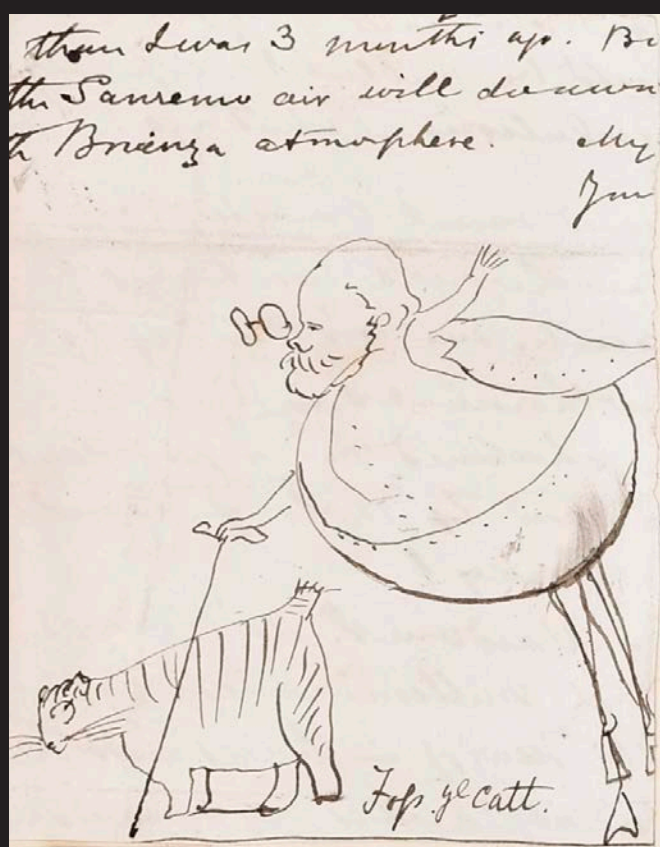 than I was 3 months ago. B
the Sanremo air will do
th Brianza atmosphere. My
You
Foss ye Catt.